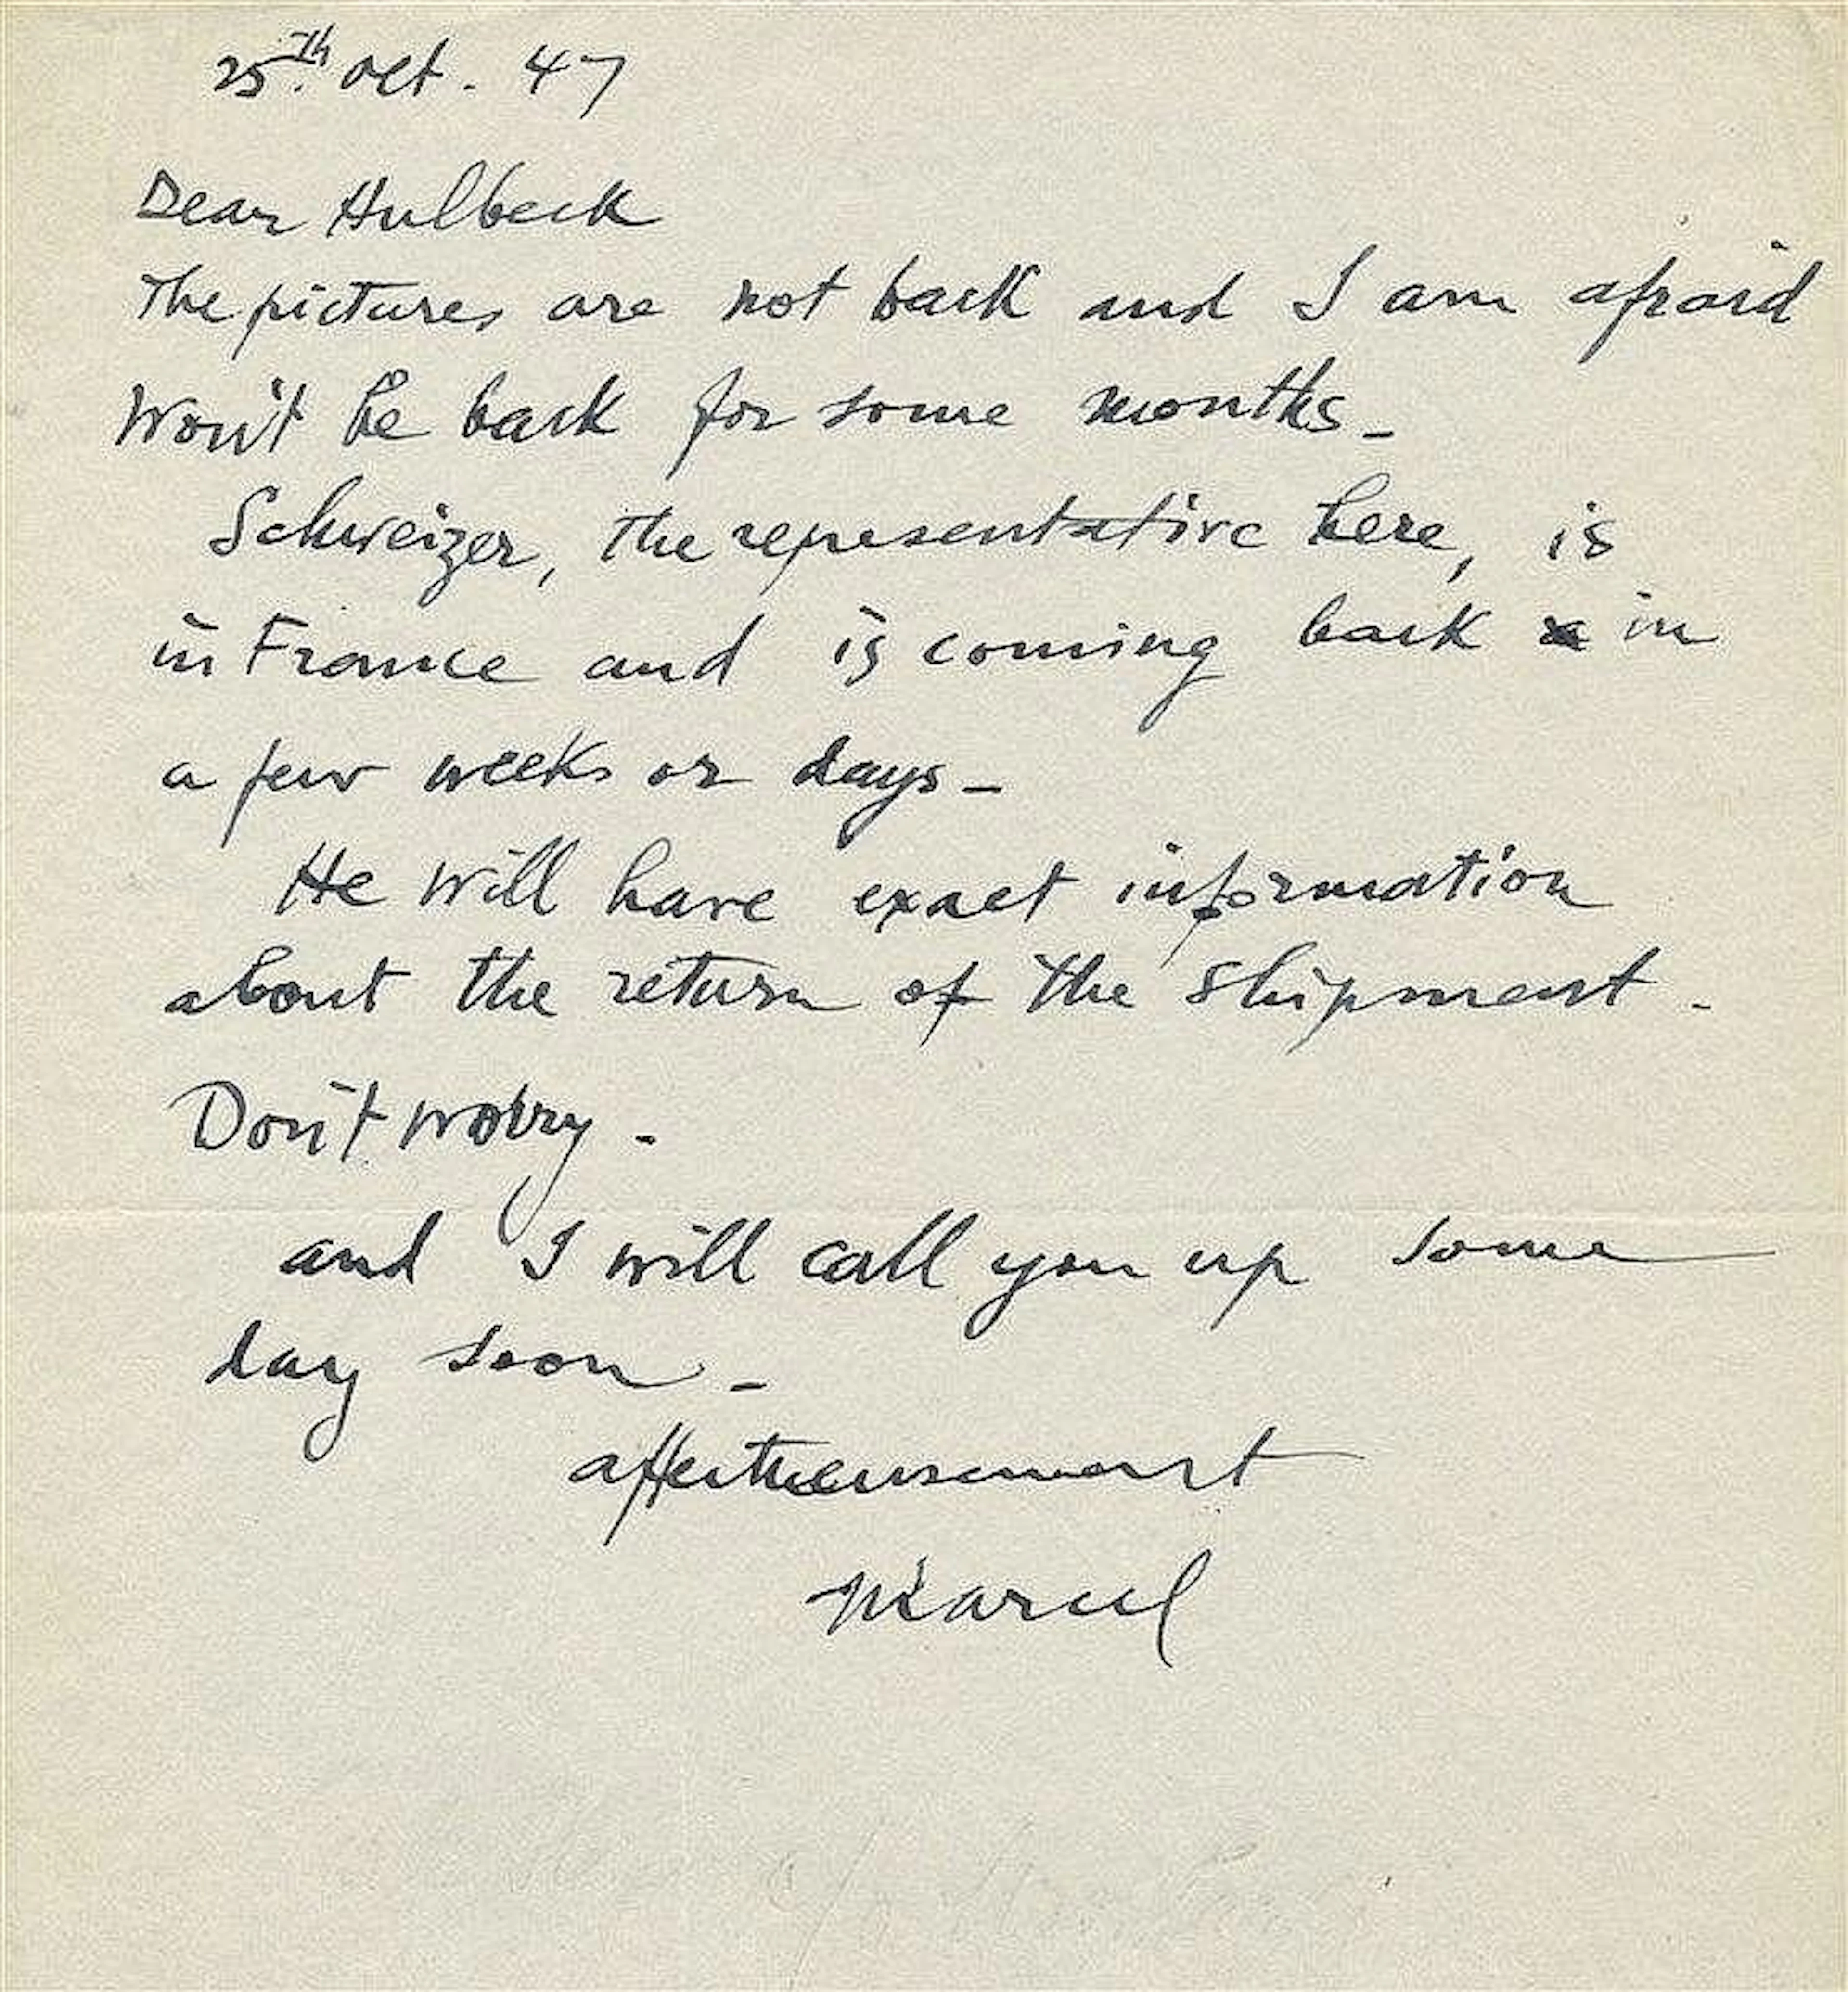 25th. oct. 47
Dear Hulbeck
The pictures are not back and I am afraid
Won't be back for some months_
Schweizer, the representative here, is
in France and is coming back in
a few weeks or days_
He will have exact information
about the return of the shipment.
Don't worry.
and I will call you up some
day soon_
affectueusement
Marcel